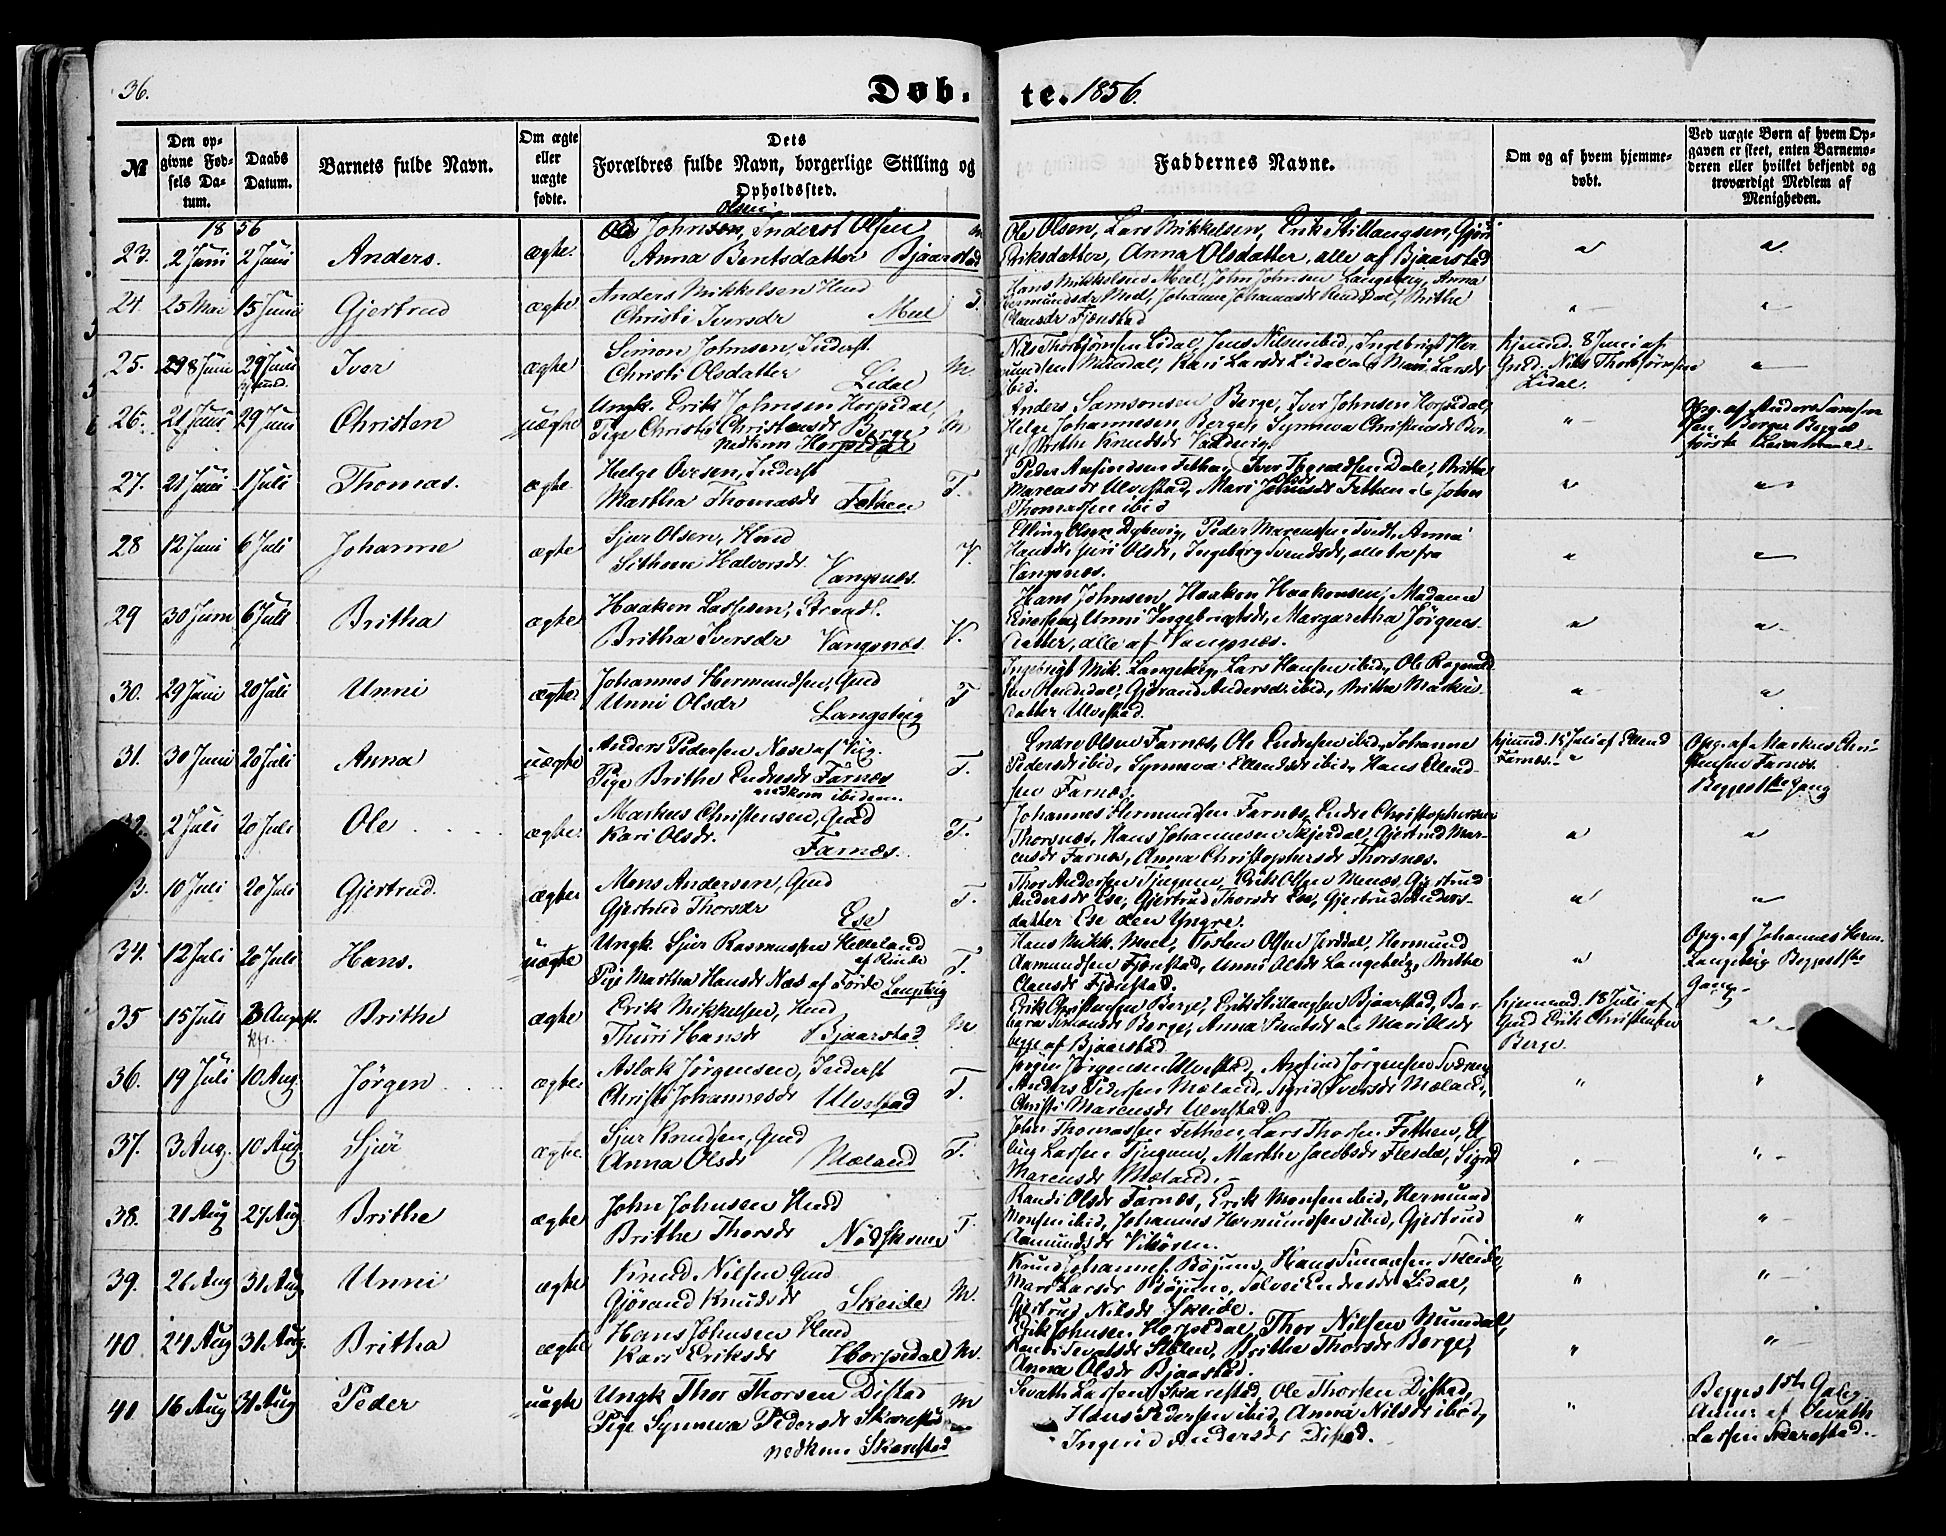 36.
Døb-
te. 1856.
№
Den op-
givne Fød-
sels Da-
tum.
Daabs
Datum.
Barnets fulde Navn.
Om ægte
eller
uægte
fødte.
Dets
Forældres fulde Navn, borgerlige Stilling og
Opholdssted.
Faddernes Navne.
Om og af hvem hjemme-
døbt.
Ved uægte Børn af hvem Op-
gaven er skeet, enten Barnemo-
deren eller hvilket bekjendt og
troværdigt Medlem af
Menigheden.
1856
23. 2 Juni 2 Juni Anders. ægte.
Anna Bentsdatter Bjaarstad
Ole Olsen, Lars Mikkelsen, Erik Stillaugsen, Gjøri
Eriksdatter, Anna Olsdatter, alle af Bjaarstad
24. 25 Mai 15 Juni Gjertrud ægte
Anders Mikkelsen Hmd
Christi Iversdr Meel T.
Hans Mikkelsen Meel, John Johnsen Langebrig, Anna
25. 8 Juni 29 Juni Iver ægte
Simon Johnsen, Inderst
Christi Olsdatter Lidal M.
Nils Thorbjørnsen Lidal, Jens Nilsen ibid, Ingebrigt Her-
mundsen Mundal, Kari Larsdr Lidal og Mari Larsdr
ibid.
hjmd. 8 Juni af
Gmd. Nils Thorbjørnsen
Lidal.
26. 21 Juni 29 Juni Christen uægte
Ungk. Erik Johnsen Horpedal,
Pige Christi Christensdr Berge,
nedkom Horpedal M
Anders Samsonsen Berge, Iver Johnsen Horpedal,
Helge Johannesen Berge, Synneva Christensdr Ber-
ge, Brithe Knudsdr
Opg. af Anders Samson-
sen Berge Begges
første Leiermaal
27. 21 Juni 1 Juli Thomas. ægte
Helge Oversen, Inderst
Martha Thomasdr Fethen T.
Thomassen ibid
28 12 Juni 6 Juli Johanne ægte
Sjur Olsen, Hmd
Halvorsdr. Vangsnæs. V.
Elling Olsen Dybevig, Peder Marcussen Tvedt, Anna
Hansdr, Gjøri Olsdr, Ingeborg Svendsdr, alle tre fra
Vangsnæs.
29 30 Juni 6 Juli Britha ægte
Haaken Lassesen, Strandl.
Britha Iversdr Vangsnæs. V.
Hans Johnsen, Haaken Haakensen, Madame
Unni Ingebrigtsdr, Margaretha Jørgens-
datter, alle af Vangsnæs.
30. 29 Juni 20 Juli Unni ægte
Johannes Hermundsen, Gmd
Unni Olsdr
Langebrig T
datter Ulvestad.
31. 30 Juni 20 Juli Anna uægte
Anders Pedersen Nese af Vig.
Pige Brithe Endresdr Farnæs
nedkom ibidem. T.
Endre Olsen Farnæs, Ole Endresen ibid, Johanne
Pedersdr ibid, Synneva Ellendsdr ibid, Hans Ellend-
sen Farnæs.
hjmd. 15 Juli af Ellend
Farnæs.
Opg. af Markus Chri-
stensen Farnæs.
Begges 1ste Gang
2 Juli 20 Juli Ole ægte.
Markus Christensen, Gmd
Kari Olsdr. Farnæs. T.
Johannes Hermundsen Farnæs, Endre Christophersen
Thorsnæs, Hans Johannesen Skjerdal, Gjertrud Mar-
cusdr Farnæs, Anna Christophersdr Thorsnæs.
3. 10 Juli 20 Juli Gjertrud. ægte
Mons Andersen, Gmd
Gjertrud Thorsdr Ese T.
Thor Andersen Tjugum, Erik Olsen Menæs, Gjertrud
Andersdr Ese, Gjertrud Thorsdr Ese, Gjertrud Anders-
datter Ese den Yngre.
34. 12 Juli 20 Juli Hans. uægte
Ungk Sjur Rasmussen Helleland
af Rinde
Pige Martha Hansdr Næs af Førde Langebrig T.
Hans Mikk. Meel, Torsten Olsen Jerddal, Hermund
Aamundsen Fjærestad, Unni Olsdr Langebrig, Brithe
Opg. af Johannes Herm.
Langebrig Begges 1ste
Gang
35 15 Juli 3 August. Brithe ægte
Erik Mikkelsen, Hmd
Thuri Hansdr Bjaarstad M
Erik Christensen Berge, Erik Stillaugsen Bjaarstad, Bar-
bgra Simonsdr Berge, Anna Bentsdr og Mari Olsdr
begge af Bjaarstad
hjemmd. 18 Juli af
Gmd Erik Christensen
Berge.
36. 19 Juli 10 Aug. Jørgen ægte
Aslak Jørgensen, Inderst
Christi Johannesdr Ulvestad T.
Jørgen Jørgensen Ulvestad, Arnfind Jørgensen
Anders Pedersen Mæland, Sigrid Iversdr Mæland,
Christi Marcusdr Ulvestad.
37. 3 Aug. 10 Aug. Sjur ægte
Sjur Knudsen, Gmd
Anna Olsdr Mæland T.
John Thomassen Fethen, Lars Thorsen Fethen, El-
ling Larsen Tjugum, Marthe Jacobsdr Flesde, Sigrid
Marcusdr Mæland.
38. 21 Aug 27 Aug Brithe ægte
John Johnsen Hmd
Brithe Thorsdr T.
Randi Olsdr Farnæs, Erik Monsen ibid, Hermund
Monsen ibid, Johannes Hermundsen ibid, Gjertrud
Aamundsdr Vikøren.
39. 26 Aug 31 Aug Unni ægte
Knud Nilsen Gmd
Gjørand Knudsdr Skeide M.
Knud Johannes. Bøjum, Hans Simonsen Skeide,
Mari Larsdr Bøjum, Sølvei Endresdr Lidal,
Gjertrud Nilsdr Skeide.
40. 24 Aug 31 Aug. Britha ægte
Hans Johnsen Hmd
Kari Eriksdr Horpedal M.
Erik Johnsen Horpedal, Thor Nilsen Mundal,
Brithe Thorsdr Berge,
Anna Olsdr Bjaastad.
41 16 Aug 31 Aug Peder uægte
Ungk Thor Thorsen Distad
Pige Synneva Pedersdr Skarestad
nedkom Skarestad M
Sevath Larsen Skarestad, Ole Thorsen Distad,
Hans Pedersen ibid, Anna Nilsdr ibid,
Ingerid Andersdr Distad.
Begges 1ste Gang.
Anm. af Sevath
Larsen Skarestad.